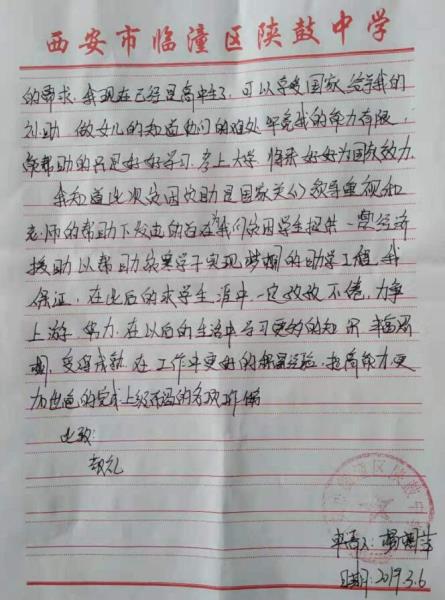 西安市临潼区陕鼓中学
的需求.我现在已经是高中生了,可以享受国家给予我的
补助 做女儿的知道他们的难处 毕竟我的能力有限,
能帮助的只是好好学习.考上大学 将来好好为国家效力.
我知道此次贫困资助是国家关心教导重视和
老师的帮助下发起的旨在为我们贫困学生提供一些经济
援助以帮助贫寒学子实现梦想的助学工程.我
保证,在此后的求学生涯中一定孜孜不倦,力争
上游.努力.在以后的生活中学习更多的知识
在工作中更好的积累经验.提高能力更
加出色的完成上级下达的各项工作
此致:
敬礼
临潼区陕鼓中学
申请人:
日期:2019.3.6